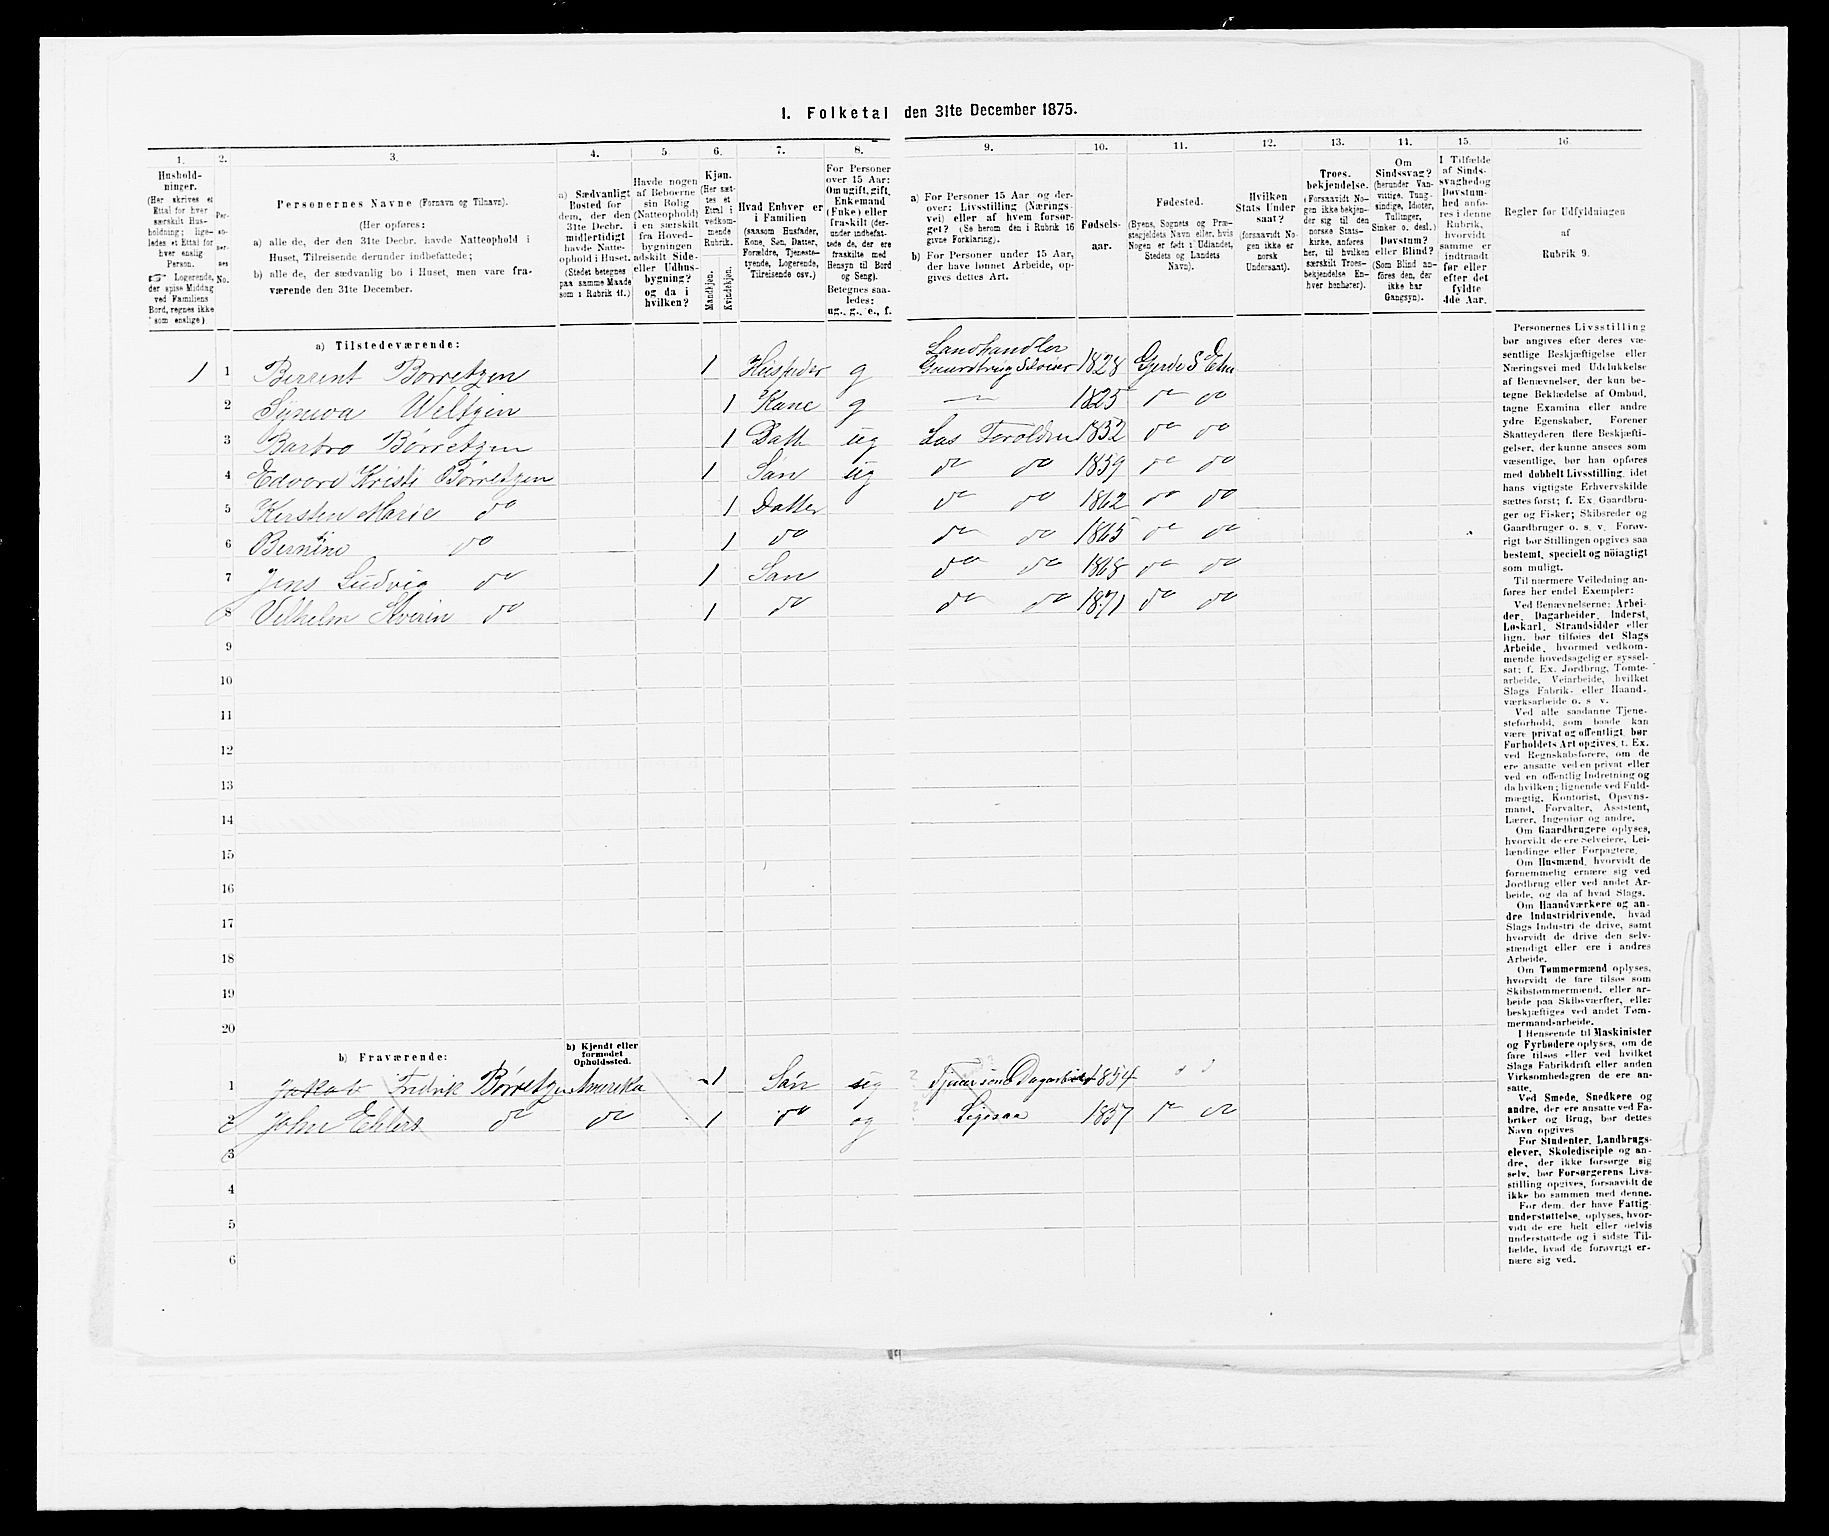 I. Folketal den 31te December 1875.
1. 2. 3. 4. 5. 6. 7. 8. 9. 10. 11. 12. 13. 14. 15. 16.
Husholdninger.
(Her skrives et
Ettal for hver
særskilt Husholdning;
ligeledes et Ettal for
hver enslig
Person.
☞ Logerende,
der spise Middag
ved Familiens
Bord, regnes ikke
som enslige)
Personernes No.
Personernes Navne (Fornavn og Tilnavn).
(Her opføres:
a) alle de, der den 31te Decbr. havde Natteophold i
Huset, Tilreisende derunder indbefattede;
b) alle de, der sædvanlig bo i Huset, men vare fraværende
den 31te December.
a) Sædvanligt
Bosted for
dem, der den
31te Decbr.
midlertidigt
havde Natteophold
i Huset.
(Stedet betegnes
paa samme Maade
som i Rubrik 11.)
Havde nogen
af Beboerne
sin Bolig
(Natteophold)
i en særskilt
fra Hovedbygningen
adskilt Side-
eller Udhusbygning?
og da i
hvilken?
Kjøn.
(Her sættes
et
Ettal i
vedkommende
Rubrik.
Mandkjøn.
Kvindekjøn.
Hvad Enhver er
i Familien
(saasom Husfader,
Kone, Søn, Datter,
Forældre, Tjenestetyende,
Logerende,
Tilreisende osv.)
For Personer
over 15 Aar:
Om ugift, gift,
Enkemand
(Enke) eller
fraskilt (derunder
indbefattede
de, der ere
fraskilte med
Hensyn til Bord
og Seng).
Betegnes saaledes:
ug., g., e., f.
a) For Personer 15 Aar og derover:
Livsstilling (Næringsvei)
eller af hvem forsørget?
(Se herom den i Rubrik 16
givne Forklaring).
b) For Personer under 15 Aar,
der have lønnet Arbeide, opgives
dettes Art.
Fødselsaar.
Fødested.
(Byens, Sognets og Præstegjeldets
Navn eller, hvis
Nogen er født i Udlandet,
Stedets og Landets
Navn).
Hvilken
Stats Undersaat?
(forsaavidt Nogen
ikke er
norsk
Undersaat).
Troesbekjendelse.
(Forsaavidt Nogen
ikke bekjender
sig til den
norske Statskirke,
anføres
her, til hvilken
særskilt Troesbekjendelse
Enhver
henhører).
Om
Sindssvag?
(herunder Vanvittige,
Tungsindige,
Idioter,
Tullinger,
Sinker o. desl.)
Døvstum?
eller Blind?
(Som Blind anføres
den, der
ikke har
Gangsyn).
I Tilfælde
af Sindssvaghed
og
Døvstumhed
anføres
i denne
Rubrik,
hvorvidt
samme er
indtraadt
før eller
efter det
fyldte
4de Aar.
Regler for Udfyldningen
af
Rubrik 9.
a) Tilstedeværende:
1 1 Berent Børretzen 1 Husfader g Landhandler Gaardbrug Selveier 1828 Gjerde S Etne
2 Synneva Weltzin 1 Kone g 1825 do do
3 Barbro Børretzen 1 Datt ug Las Forældre 1852 do do
4 Edvard Kristi Børretzen 1 Søn ug do do 1859 do do
5 Kirsten Marie do 1 Datter do do 1862 do do
6 Berntine do 1 do do do 1865 do do
7 Jens Ludvig do 1 Søn do do 1868 do do
8 Vilhelm Severin do 1 do do do 1871 do do
9
10
11
12
13
14
15
16
17
18
19
20
b) Fraværende:
b) Kjendt eller
formodet
Opholdssted.
1 Jakob Fredrik Børretzen Amerika 1 Søn ug Tjener som Dagarbeider 1854
2 John Ehlers do do 1 do ug Ligesaa 1857 do do
3
4
5
6
Personernes Livsstilling
bør angives efter deres væsentlige
Beskjæftigelse eller
Næringsvei med Udelukkelse
af Benævnelser, der kun betegne
Beklædelse af Ombud,
tagne Examina eller andre
ydre Egenskaber. Forener
Skatteyderen flere Beskjæftigelser,
der kunne ansees som
væsentlige, bør han opføres
med dobbelt Livsstilling, idet
hans vigtigste Erhvervskilde
sættes først; f. Ex. Gaardbruger
og Fisker; Skibsreder og
Gaardbruger o. s. v. Forøvrigt
bør Stillingen opgives saa
bestemt, specielt og nöiagtigt
som muligt.
Til nærmere Veiledning anføres
her endel Exempler:
Ved Benævnelserne: Arbeider,
Dagarbeider, Inderst,
Løskarl, Strandsidder eller
lign. bør tilføies det Slags
Arbeide, hvormed vedkommende
hovedsagelig er sysselsat;
f. Ex. Jordbrug, Tomtearbeide,
Veiarbeide, hvilket
Slags Fabrik- eller Haandværksarbeide
o. s. v.
Ved alle saadanne Tjenesteforhold,
som baade kan
være privat og offentligt, bør
Forholdets Art opgives, t. Ex.
ved Regnskabsførere, om de
ere ansatte ved en privat eller
ved en offentlig Indretning og
da hvilken; lignende ved Fuldmægtig,
Kontorist, Opsynsmand,
Forvalter, Assistent,
Lærer, Ingeniør og andre.
Om Gaardbrugere oplyses,
hvorvidt de ere Selveiere, Leilændinge
eller Forpagtere.
Om Husmænd, hvorvidt de
fornemmelig ernære sig ved
Jordbrug eller ved andet Arbeide,
og da af hvad Slags.
Om Haandværkere og andre
Industridrivende, hvad
Slags Industri de drive, samt
hvorvidt de drive den selvstændigt
eller ere i andres
Arbeide.
Om Tømmermænd oplyses,
hvorvidt de fare tilsøs som
Skibstømmermænd, eller arbeide
paa Skibsværfter, eller
beskjæftiges ved andet Tømmermandsarbeide.
I Henseende til Maskinister
og Fyrbødere oplyses, om de
fare tilsøs eller ved hvilket
Slags Fabrikdrift eller anden
Virksomhedsgren de ere ansatte.
Ved Smede, Snedkere og
andre, der ere ansatte ved Fabriker
og Brug, bør dettes
Navn opgives
For Studenter, Landbrugselever,
Skoledisciple og andre,
der ikke forsørge sig
selv, bør Forsørgerens Livsstilling
opgives, forsaavidt de
ikke bo sammen med denne.
For dem, der have Fattigunderstøttelse,
oplyses, hvorvidt
de ere helt eller delvis
understøttede og i sidste Tilfælde,
hvad de forøvrigt ernære
sig ved.